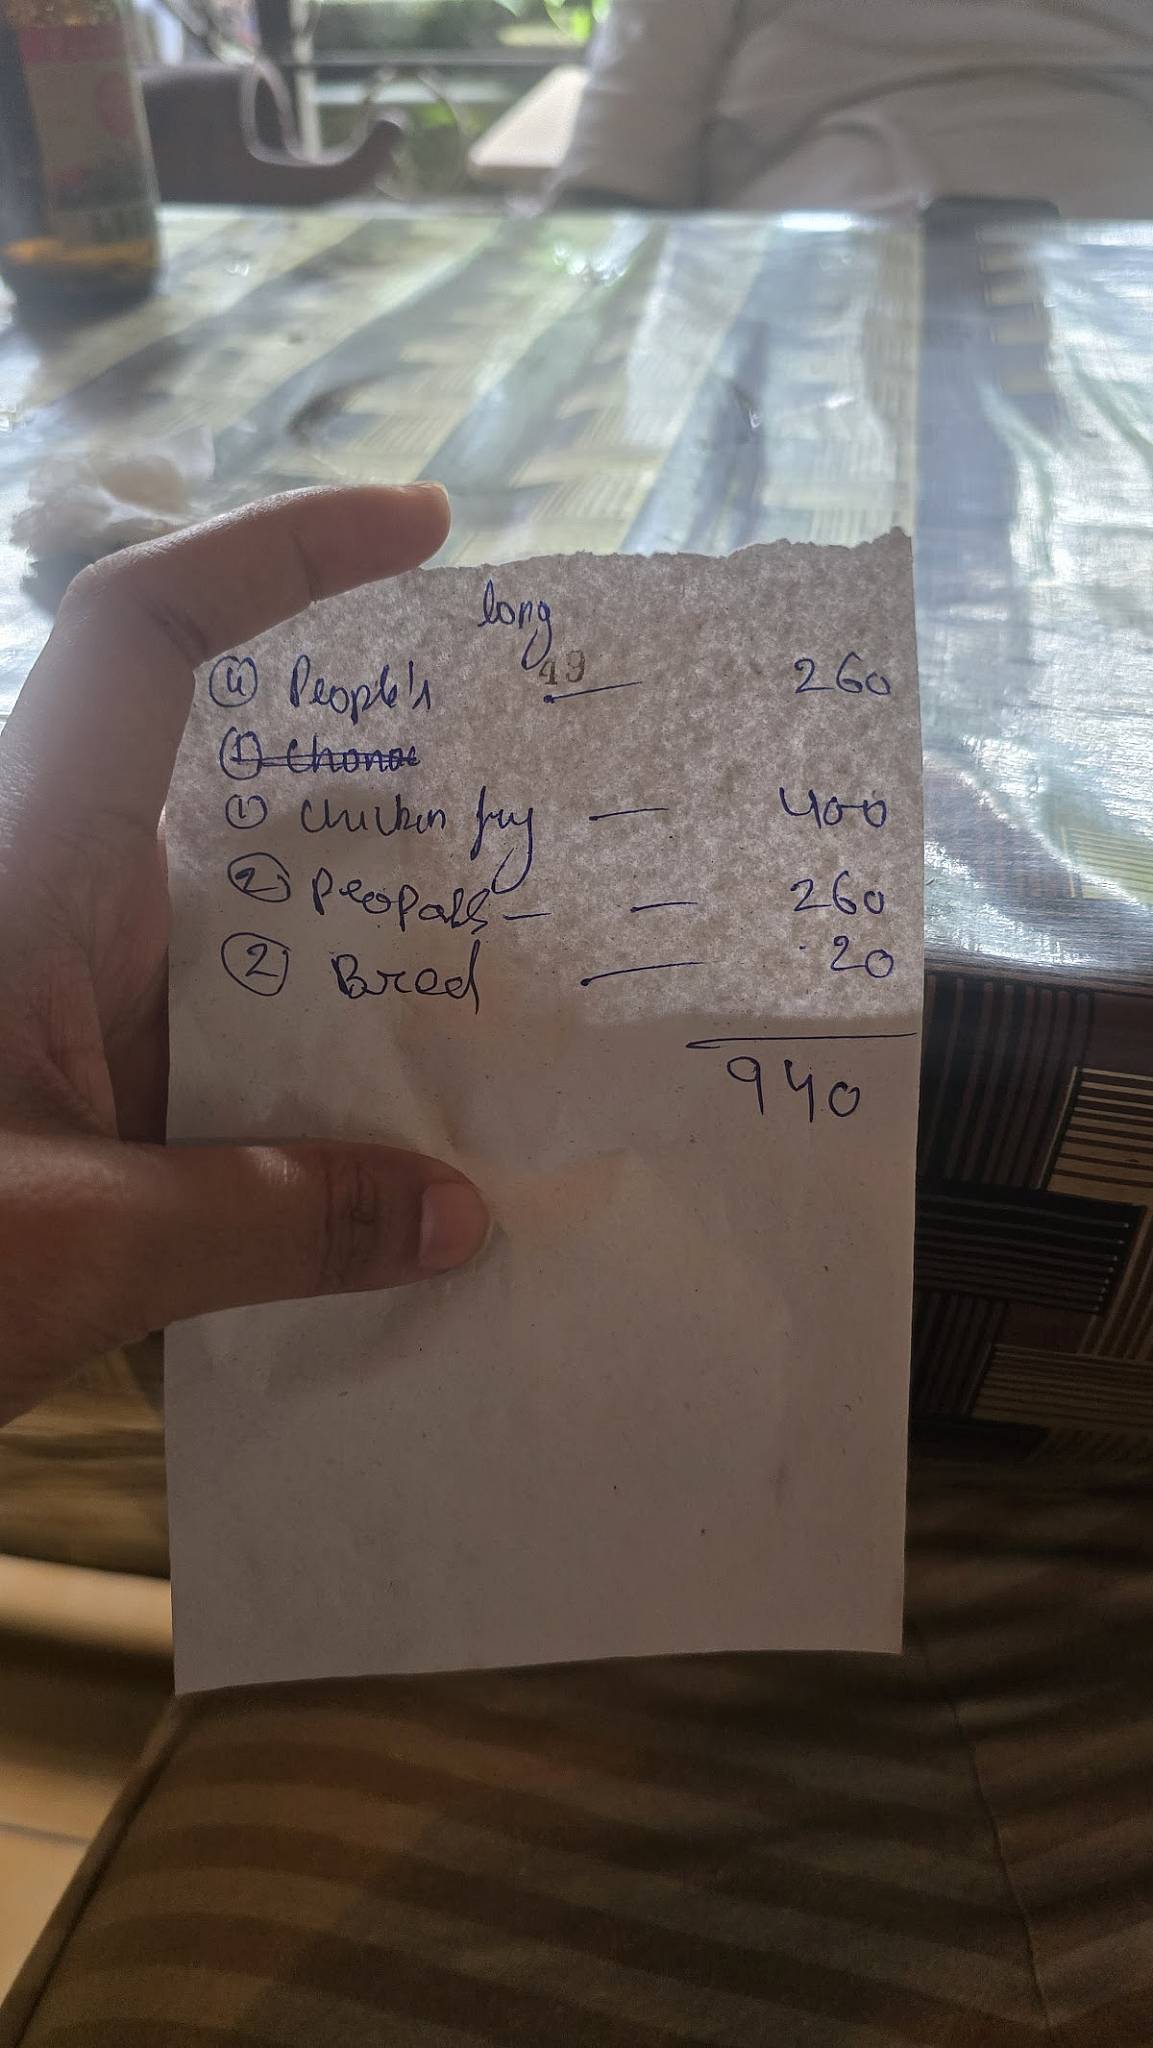 long
49
④ People's — 260
① Chonae
① Chicken fry — 400
② Peopals — — 260
② Bred — 20
940